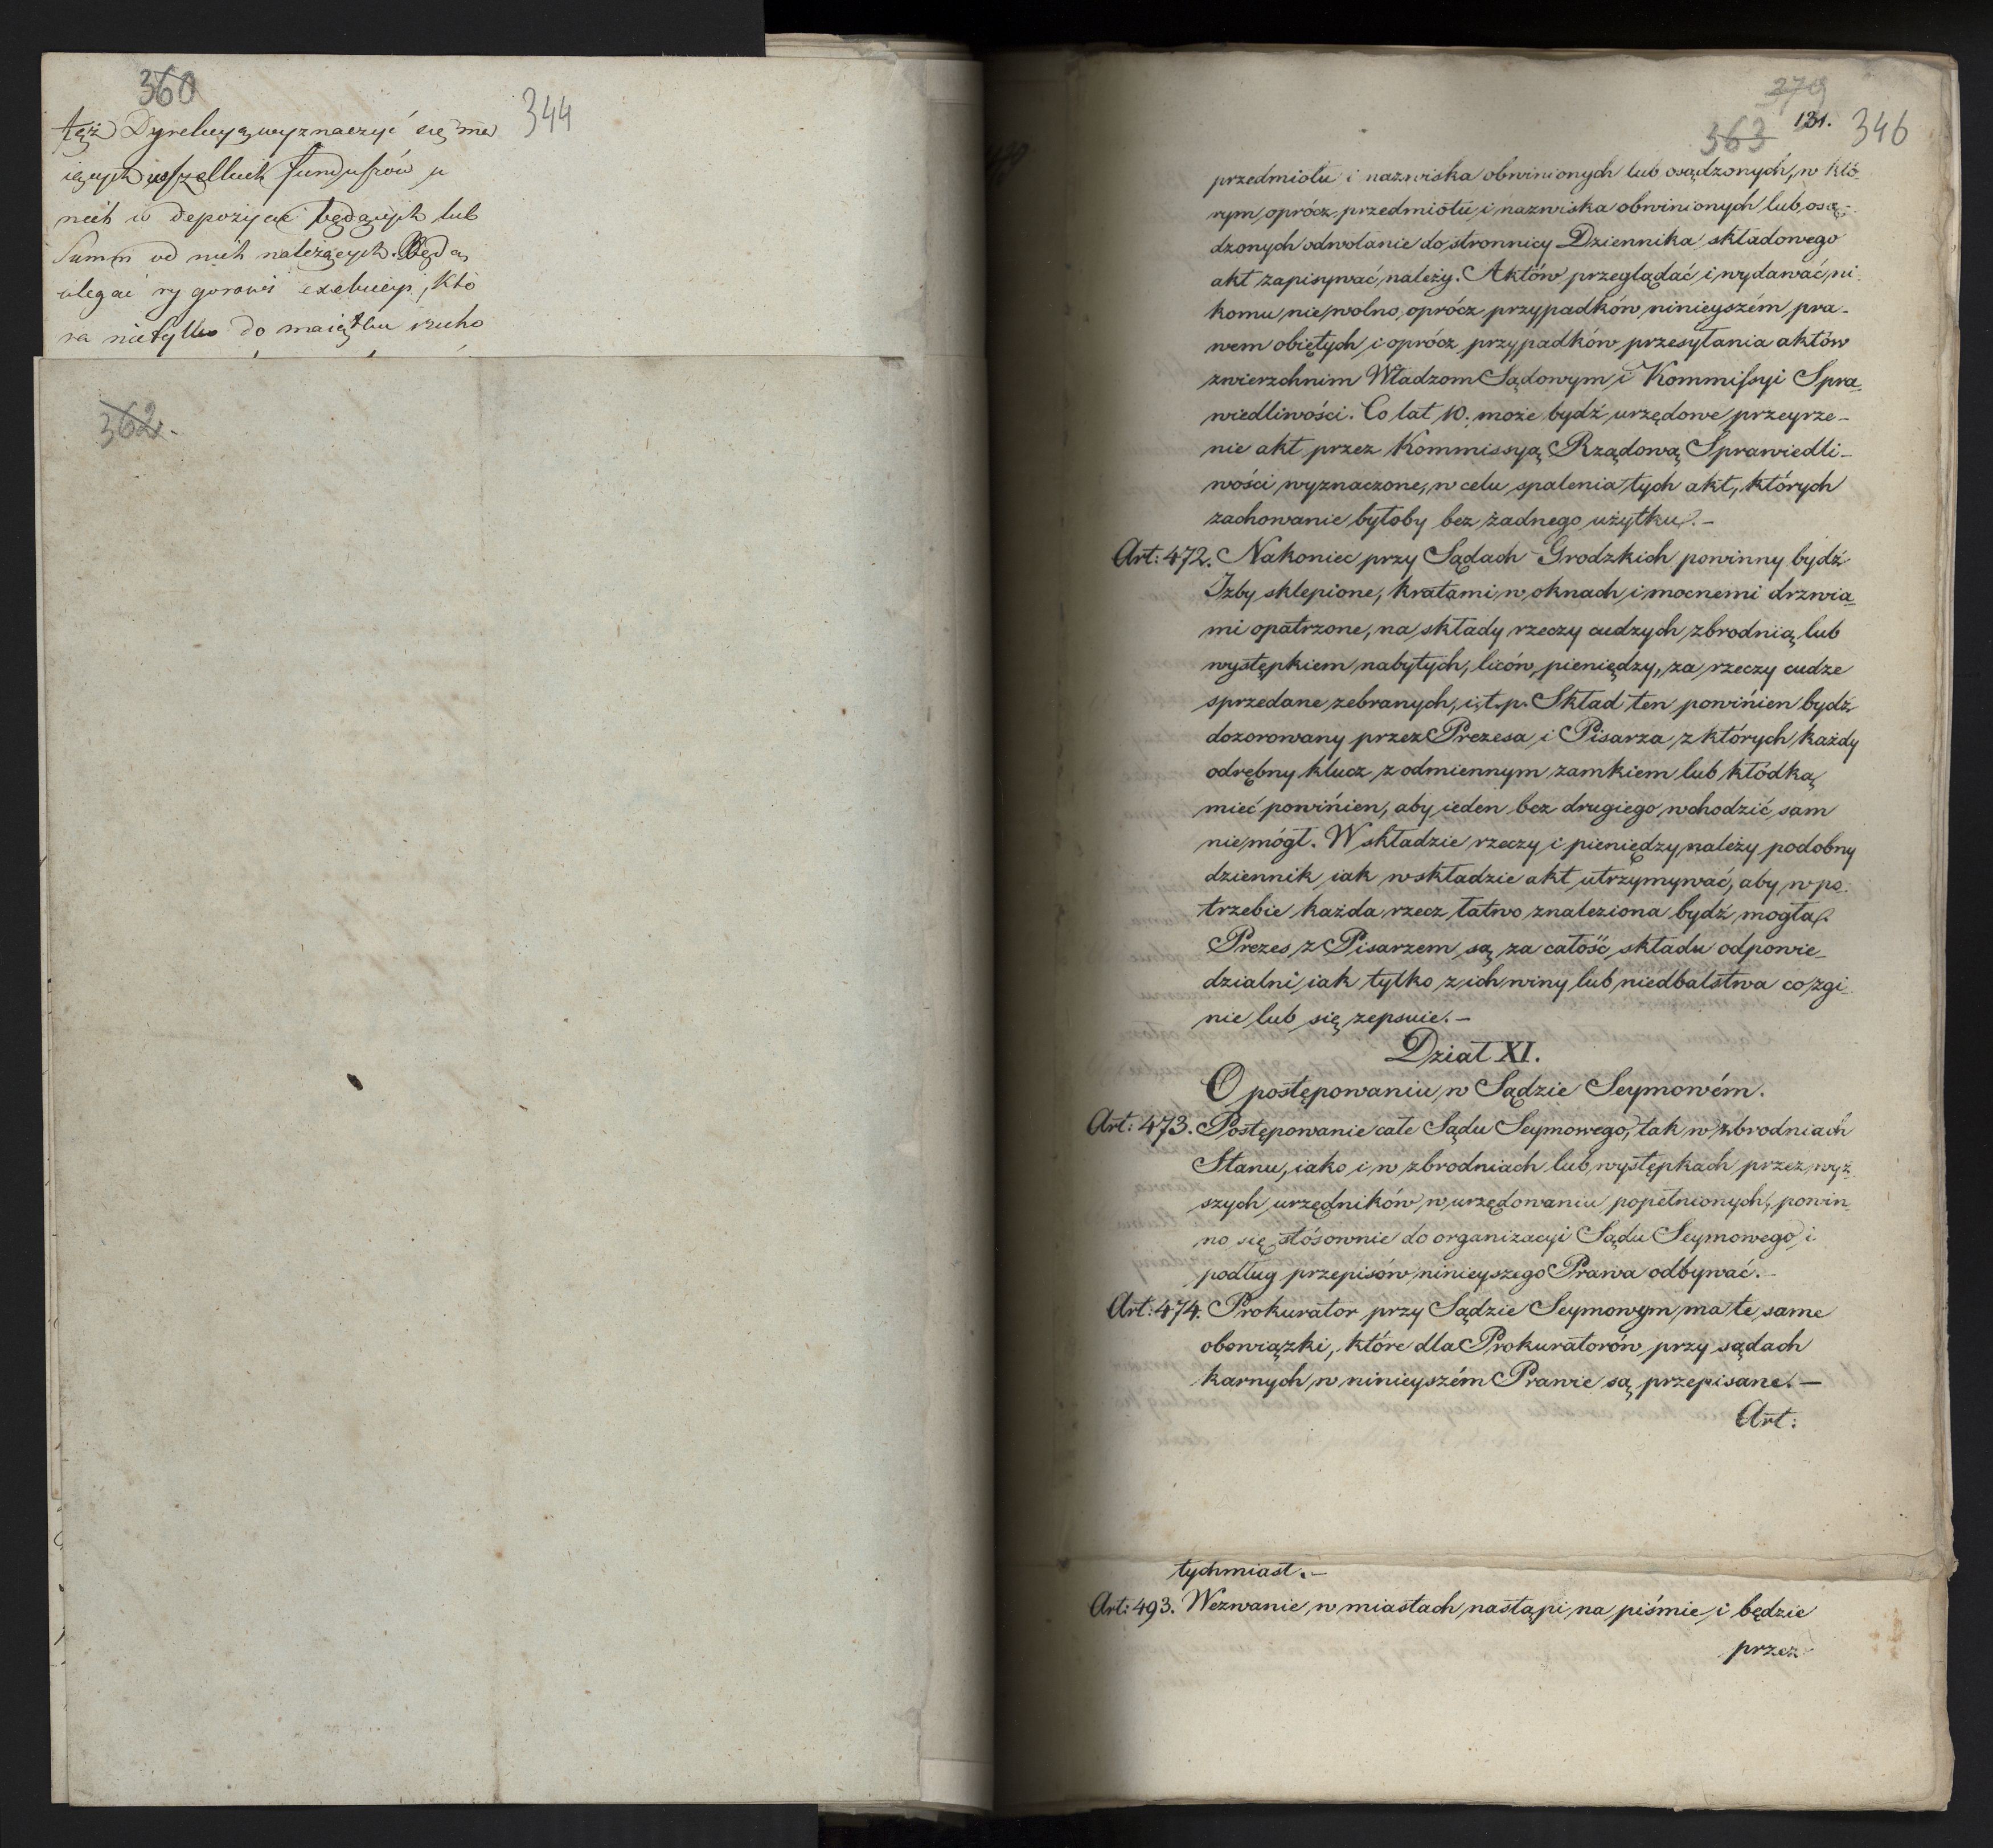 360
344
też Dyrekcyą wyznaczyć się ma
iących wszelkich funduszów u
nich w depozycie będących lub
Summ od nich należących. Będą
ulegać rygorowi exekucyi, któ
ra nietylko do maiątku rucho
362.
379
131.
363
346
przedmiotu i nazwiska obwinionych lub osądzonych, w któ-
rym oprócz przedmiotu i nazwiska obwinionych lub osą-
dzonych odwołanie do stronnicy Dziennika składowego
akt zapisywać należy. Aktów przeglądać i wydawać ni-
komu nie wolno, oprócz przypadków ninieyszém pra-
wem obiętych i oprócz przypadków przesyłania aktów
zwierzchnim Władzom Sądowym i Kommissyi Spra-
wiedliwości. Co lat 10. może bydź urzędowe przeyrze-
nie akt przez Kommissyą Rządową Sprawiedli-
wości wyznaczone, w celu spalenia tych akt, których
zachowanie byłoby bez żadnego użytku.-
Art: 472. Nakoniec przy Sądach Grodzkich powinny bydź
Izby sklepione, kratami w oknach i mocnemi drzwia-
mi opatrzone, na składy rzeczy cudzych zbrodnią lub
występkiem nabytych, liców, pieniędzy, za rzeczy cudze
sprzedane zebranych, i.t.p. Skład ten powinien bydź
dozorowany przez Prezesa i Pisarza, z których każdy
odrębny klucz z odmiennym zamkiem lub kłódką
mieć powinien, aby ieden bez drugiego wchodzić sam
nie mógł. W składzie rzeczy i pieniędzy należy podobny
dziennik iak w składzie akt utrzymywać, aby w po-
trzebie każda rzecz łatwo znaleziona bydź mogła.
Prezes z Pisarzem są za całość składu odpowie-
dzialni iak tylko z ich winy lub niedbalstwa co zgi-
nie lub się zepsuie.-
Dział XI.
O postępowaniu w Sądzie Seymowém.
Art: 473. Postępowanie całe Sądu Seymowego, tak w zbrodniach
Stanu, iako i w zbrodniach lub występkach przez wyż-
szych urzędników w urzędowaniu popełnionych, powin-
no się stósownie do organizacyi Sądu Seymowego i
podług przepisów ninieyszego Prawa odbywać.-
Art: 474. Prokurator przy Sądzie Seymowym ma te same
obowiązki, które dla Prokuratorów przy sądach
karnych w ninieyszém Prawie są przepisane.-
Art:
tychmiast.-
Art: 493. Wezwanie w miastach nastąpi na piśmie i będzie
przez